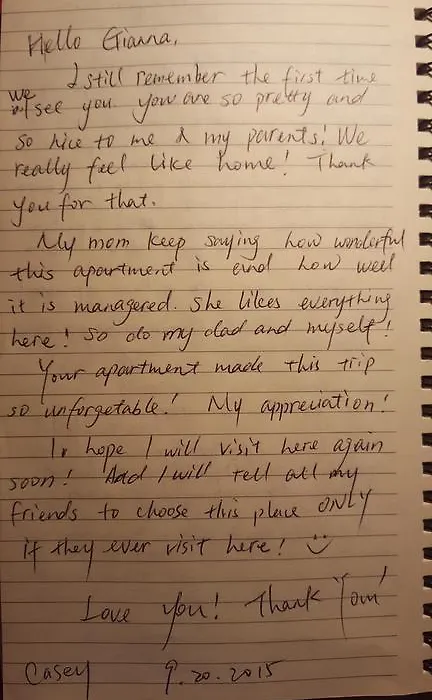 Hello Gianna,
I still remember the first time
we see you. You are so pretty and
so nice to me & my parents! We
really feel like home! Thank
you for that.
My mom keep saying how wonderful
this apartment is and how well
it is managered. She likes everything
here! So do my dad and myself!
Your apartment made this trip
so unforgetable! My appreciation!
I hope I will visit here again
soon! And I will tell all my
friends to choose this place ONLY
if they ever visit here!
Love you! Thank You!
Casey 9.20.2015